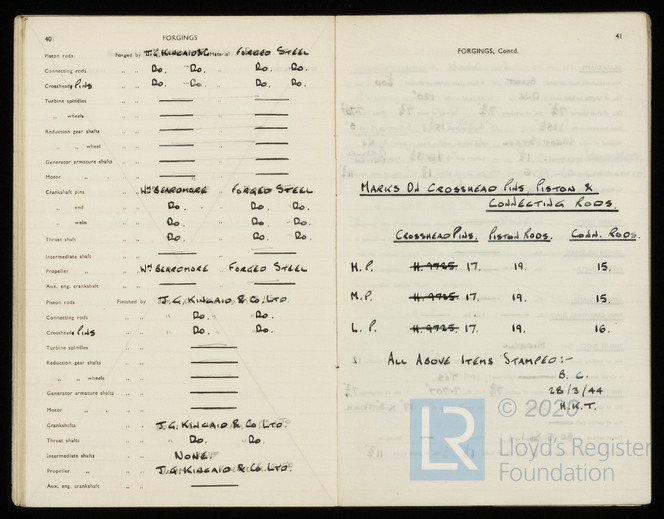 40
FORGINGS
Piston rods Forged by J.G. KINCAID & C Material FORGED STEEL
Connecting rods " " Do. Do. " Do. Do.
Crossheads PINS " " Do. Do. " Do. Do.
Turbine spindles " " "
" wheels " " "
Reduction gear shafts " " "
" " wheel " " "
Generator armature shafts " " "
Motor " " " "
Crankshaft pins " " Wm BEARDMORE " FORGED STEEL
" end " " Do. " Do. Do.
" webs " " Do. " Do. Do.
Thrust shaft " " Do. " Do. Do.
Intermediate shaft " " "
Propeller " " " Wm BEARDMORE " FORGED STEEL
Aux. eng. crankshaft " " "
Piston rods Finished by J.G. KINCAID & Co. LTD.
Connecting rods " " Do. Do.
Crossheads PINS " " Do. Do.
Turbine spindles " "
Reduction gear shafts " "
" " wheels " "
Generator armature shafts " "
Motor " " "
Crankshafts " " J.G. KINCAID & Co LTD.
Thrust shafts " " Do. Do.
Intermediate shafts " " NONE.
Propeller " " " J.G. KINCAID & Co. LTD.
Aux. eng. crankshaft " "
41
FORGINGS, Contd.
MARKS ON CROSSHEAD PINS, PISTON &
CONNECTING RODS.
CROSSHEAD PINS. PISTON RODS. CONN. RODS.
H.P. H.9725. 17. 19. 15.
M.P. H.9725. 17. 19. 15.
L.P. H.9725. 17. 19. 16.
ALL ABOVE ITEMS STAMPED:-
B.C.
28/3/44
H.K.T.
LR © 2020
Lloyd's Register
Foundation